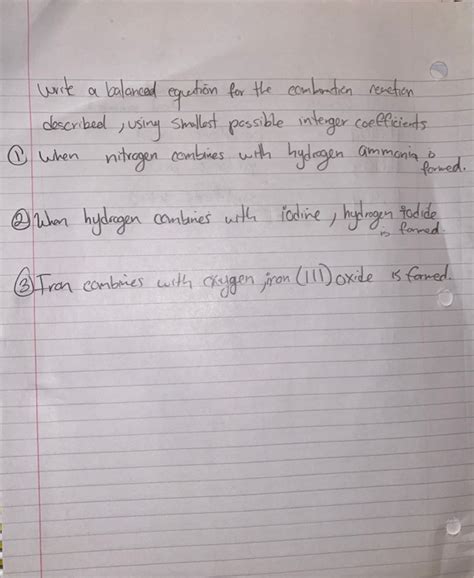 Write a balanced equation for the combination reaction
described, using smallest possible interger coefficients
① When nitrogen combines with hydrogen ammonia is
formed.
② When hydrogen combines with iodine, hydrogen iodide
is formed.
③ Iron combines with oxygen, iron (III) oxide is formed.